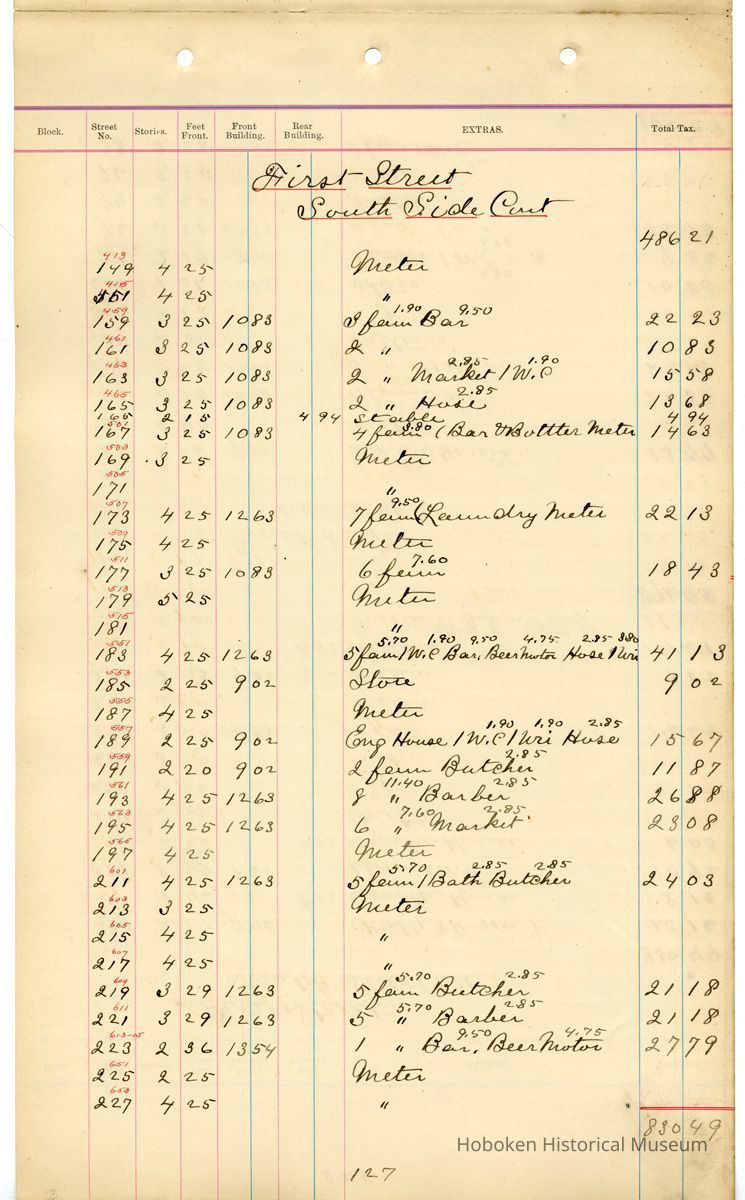 Block. Street No. Stories. Feet Front. Front Building. Rear Building. EXTRAS. Total Tax.
First Street
South Side Cont
486 21
413
149 4 25 Meter
415
151 4 25 "
459 1.90 9.50
159 3 25 10 83 3 fam Bar 22 23
461
161 3 25 10 83 2 " 10 83
463 2.85 1.90
163 3 25 10 83 2 " Market 1 W.C 15 58
465 2.85
165 3 25 10 83 2 " Hose 13 68
165 2 15 4 94 Stable 4 94
501 3.80
167 3 25 10 83 4 fam (Bar & Bottler Meter 14 63
503
169 3 25 Meter
505
171 "
507 9.50
173 4 25 12 63 7 fam (Laundry Meter 22 13
509
175 4 25 Meter
511 7.60
177 3 25 10 83 6 fam 18 43
513
179 5 25 Meter
515
181 "
551 5.70 1.90 9.50 4.75 2.85 3.80
183 4 25 12 63 5 fam 1 W.C Bar, Beer Motor Hose 1 Uri 41 13
553
185 2 25 9 02 Store 9 02
555
187 4 25 Meter
557 1.90 1.90 2.85
189 2 25 9 02 Eng House 1 W.C 1 Uri Hose 15 67
559 2.85
191 2 20 9 02 2 fam Butcher 11 87
561 11.40 2.85
193 4 25 12 63 8 " Barber 26 88
563 7.60 2.85
195 4 25 12 63 6 " Market 23 08
565
197 4 25 Meter
601 5.70 2.85 2.85
211 4 25 12 63 5 fam 1 Bath Butcher 24 03
603
213 3 25 Meter
605
215 4 25 "
607
217 4 25 "
609 5.70 2.85
219 3 29 12 63 5 fam Butcher 21 18
611 5.70 2.85
221 3 29 12 63 5 " Barber 21 18
613-15 9.50 4.75
223 2 36 13 54 1 " Bar, Beer Motor 27 79
651
225 2 25 Meter
653
227 4 25 "
830 49
Hoboken Historical Museum
127